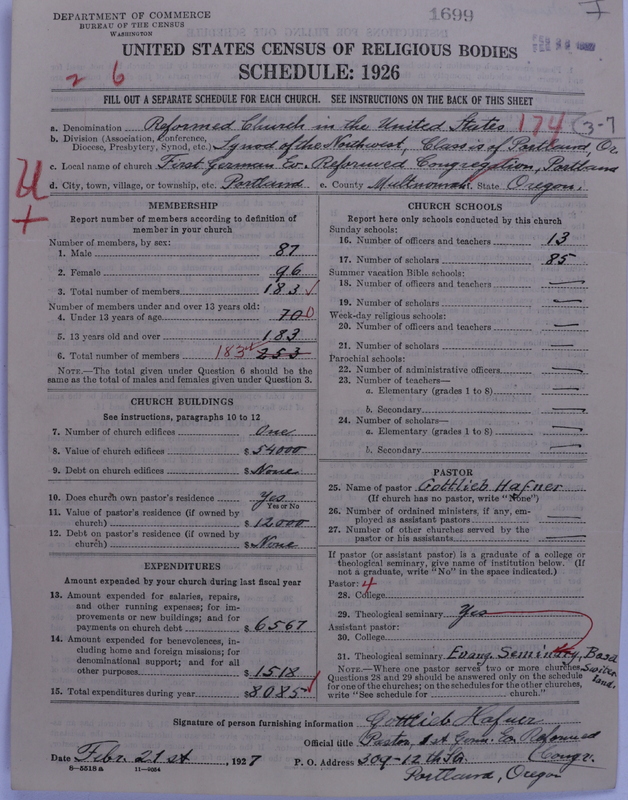 DEPARTMENT OF COMMERCE
BUREAU OF THE CENSUS
WASHINGTON
1699
UNITED STATES CENSUS OF RELIGIOUS BODIES
SCHEDULE: 1926
2 6
FILL OUT A SEPARATE SCHEDULE FOR EACH CHURCH. SEE INSTRUCTIONS ON THE BACK OF THIS SHEET
a. Denomination Reformed Church in the United States 174 (3-7
b. Division (Association, Conference, Diocese, Presbytery, Synod, etc.) Synod of the Northwest, Classis of Portland Or
c. Local name of church First German Ev. Reformed Congregation, Portland
d. City, town, village, or township, etc. Portland e. County Multnomah f. State Oregon.
MEMBERSHIP
Report number of members according to definition of
member in your church
Number of members, by sex:
1. Male 87
2. Female 96
3. Total number of members 183
Number of members under and over 13 years old:
4. Under 13 years of age 70 0
5. 13 years old and over 183
6. Total number of members 183 253
NOTE.—The total given under Question 6 should be the
same as the total of males and females given under Question 3.
CHURCH BUILDINGS
See instructions, paragraphs 10 to 12
7. Number of church edifices One
8. Value of church edifices $ 54000
9. Debt on church edifices $ None
10. Does church own pastor's residence Yes
Yes or No
11. Value of pastor's residence (if owned by
church) $ 12000
12. Debt on pastor's residence (if owned by
church) $ None
EXPENDITURES
Amount expended by your church during last fiscal year
13. Amount expended for salaries, repairs,
and other running expenses; for im-
provements or new buildings; and for
payments on church debt $ 6567
14. Amount expended for benevolences, in-
cluding home and foreign missions; for
denominational support; and for all
other purposes $ 1518
15. Total expenditures during year $ 8085
CHURCH SCHOOLS
Report here only schools conducted by this church
Sunday schools:
16. Number of officers and teachers 13
17. Number of scholars 85
Summer vacation Bible schools:
18. Number of officers and teachers —
19. Number of scholars —
Week-day religious schools:
20. Number of officers and teachers —
21. Number of scholars —
Parochial schools:
22. Number of administrative officers —
23. Number of teachers—
a. Elementary (grades 1 to 8) —
b. Secondary —
24. Number of scholars—
a. Elementary (grades 1 to 8) —
b. Secondary —
PASTOR
25. Name of pastor Gottlieb Hafner
(If church has no pastor, write "None")
26. Number of ordained ministers, if any, em-
ployed as assistant pastors —
27. Number of other churches served by the
pastor or his assistants —
If pastor (or assistant pastor) is a graduate of a college or
theological seminary, give name of institution below. (If
not a graduate, write "No" in the space indicated.)
Pastor: 4
28. College
29. Theological seminary Yes
Assistant pastor:
30. College
31. Theological seminary Evang. Seminary, Basel
Switzerland.
NOTE.—Where one pastor serves two or more churches,
Questions 28 and 29 should be answered only on the schedule
for one of the churches; on the schedules for the other churches,
write "See schedule for church."
Signature of person furnishing information Gottlieb Hafner
Official title Pastor, 1st Germ. Ev. Reformed
Congr.
Date Febr. 21st, 1927 P. O. Address 504-12th St.
Portland, Oregon
8—5518 a 11—9054